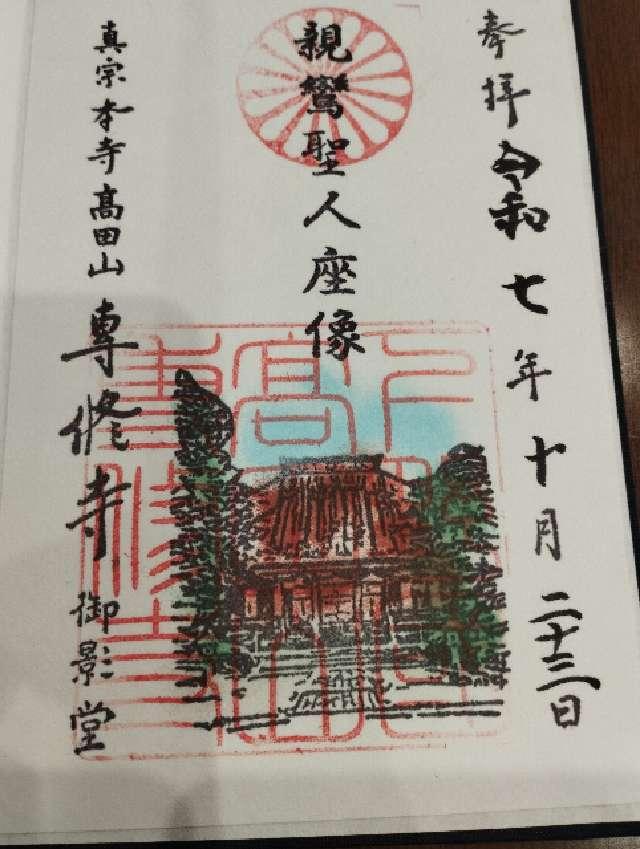 奉拝 令和七年十月二十三日
親鸞聖人座像
真宗本寺高田山 専修寺 御影堂